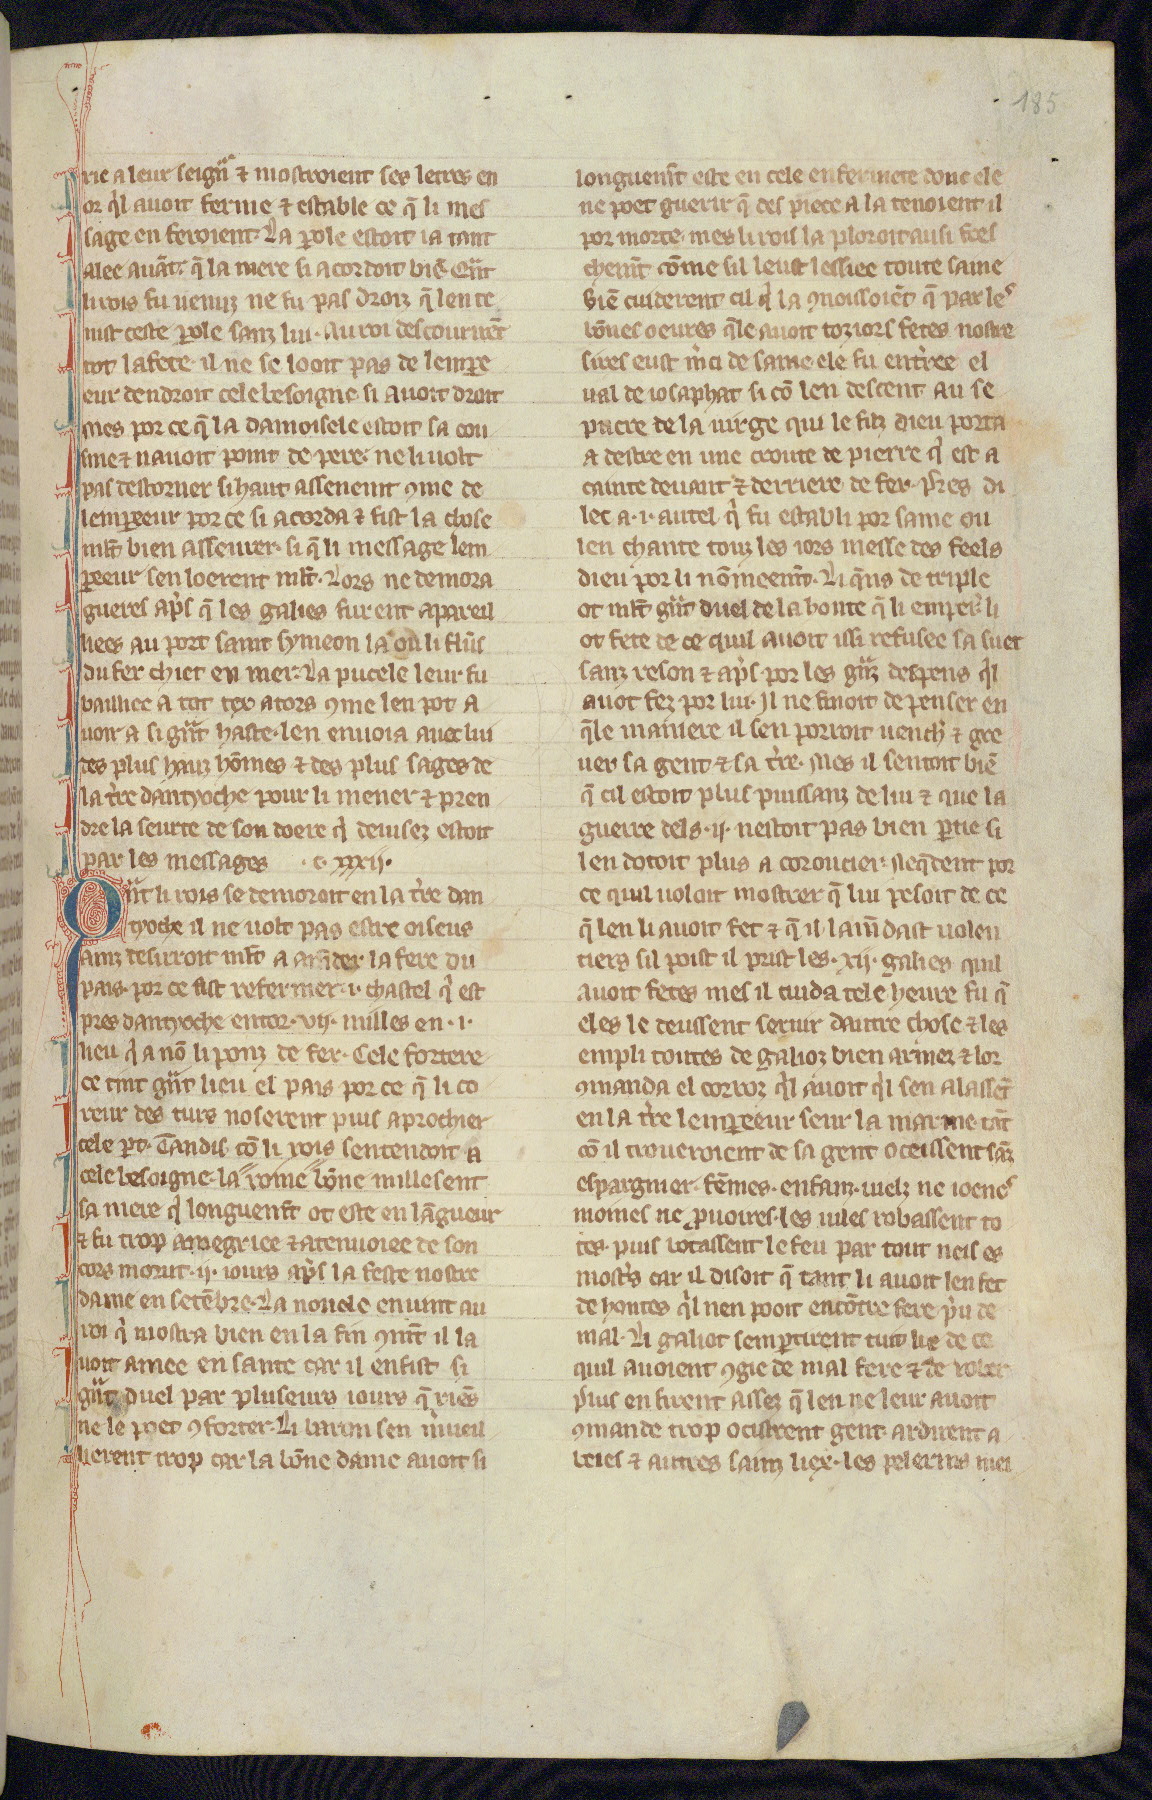 185
rie a leur seign̄r ⁊ mostroient ses letres en
or q̓l avoit ferme ⁊ estable ce q̄ li mes
sage en feroient. La ꝑole estoit ia tant
alee auāt. q̄ la mere si acordoit biē. Q̄nt
li rois fu uenuz ne fu pas droiz q̄ len te
nist ceste ꝑole sanz lui. Au roi descouurirēt
tot lafere. il ne se looit pas de lempe
eur dendroit cele besoigne. si auoit droit
Mes por ce q̄ la damoisele estoit sa cou
sine ⁊ nauoit point de pere. ne li uolt
pas destorner si haut assenemt ꝯme de
lemꝑeeur por ce si acorda ⁊ fist la chose
ml̄t bien asseurer. si q̄ li message lem
ꝑeeur sen loerent ml̄t. Lors ne demora
gueres ap̓s q̄ les galies furent apareil
liees au port saint symeon la ou li fluns
du fer chiet en mer. La pucele leur fu
bailliee a tot tex ators ꝯme len pot a
uoir a si gñt haste. len enuoia auec lui
des plus hauz hōmes ⁊ des plus sages de
la t̓re dantyoche pour li mener ⁊ pren
dre la seurte de son doere q̓ deuisez estoit
par les messages .c. xxxii.
Qñt li rois se demoroit en la t̓re dan
tyoche il ne uolt pas estre oiseus
ainz desirroit ml̄t a amāder lafere du
pais. por ce fist refermer .i. chastel q̓ est
pres dantyoche entor .vii. milles en .i.
lieu q̓ a nō li ponz de fer. Cele fortere
ce tint gñt lieu el pais por ce q̄ li co
reur des turs noserent puis aprochier
cele ꝑt. Tandis cō li rois sentendoit a
cele besoigne. la roine bōne millesent
sa mere q̓ longuemt ot este en lāgueur
⁊ fu trop amegriee ⁊ atenuoiee de son
cors morut .ii. iours ap̓s la feste nostre
dame en setēbre. La nouele en uint au
roi q̓ mostra bien en la fin ꝯmt il la
uoit amee en sante car il en fist si
gñt duel par pluseurs iours q̄ riēs
ne le poet ꝯforter. Li baron sen m̓ueil
lierent trop car la bōne dame auoit si
longuemt este en cele enfermete donc ele
ne poet guerir q̄ des piece a la tenoient il
por morte. mes li rois la ploroit ausi fres
chemt cōme sil leust lessiee toute saine
Biē cuiderent cil q̓ la ꝯnoissoiēt q̄ par les
bōnes oeures q̄le auoit toz iors fetes nostre
sires eust m̓ci de same ele fu ent̓ree el
ual de iosaphat si cō len descent au se
pucre de la uirge qui le filz dieu porta
a destre en une croute de pierre q̓ est a
cainte deuant ⁊ derriere de fer. P̓res di
lec a .i. autel q̓ fu establi por same ou
len chante touz les iors messe des feels
dieu por li nōmeemt. Li q̄ns de triple
ot ml̄t gñt duel de la honte q̄ li emꝑer̓ li
ot fete de ce quil auoit issi refusee sa suer
sanz reson ⁊ ap̓s por les gñz despens q̓l
auot fez por lui. Il ne finoit de penser en
q̄le maniere il sen porroit uench̓ ⁊ gre
uer sa gent ⁊ sa t̓re. Mes il sentoit biē
q̄ cil estoit plus puissanz de lui ⁊ que la
guerre dels .ii. nestoit pas bien ꝑtie si
len dotoit plus a coroucier. Neq̄dent por
ce quil uoloit mostrer q̄ lui pesoit de ce
q̄ len li auoit fet ⁊ q̄ il lamādast uolen
tiers sil poist il prist les .xii. galies quil
auoit fetes mes il cuida tele heure fu q̄
eles le deussent seruir dautre chose ⁊ les
empli toutes de galioz bien armez ⁊ lor
ꝯmanda el corroz q̓l auoit q̓l sen alassēt
en la t̓re lemꝑeeur seur la marine tāt
cō il troueroient de sa gent oceissent sāz
espargnier. fēmes. enfanz. uielz ne ioenes
moines ne ꝓuoires. les uiles robassent to
tes. puis botassent le feu par tout neis es
most̓s car il disoit q̄ tant li auoit len fet
de hontes q̓l nen pooit encōtre fere p̓u de
mal. Li galiot sempartirent tuit lie de ce
quil auoient ꝯgie de mal fere ⁊ de rober
Plus en firent assez q̄ len ne leur auoit
ꝯmande trop ocistrent gent. ardirent a
beies ⁊ autres sainz liex. les pelerins mei